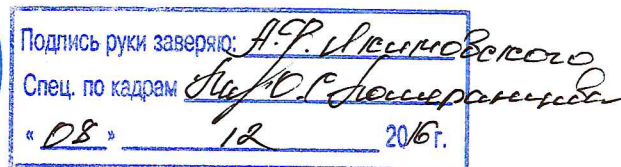 Подпись руки заверяю: А.Ф. Якимовского
Спец. по кадрам О.С. Померанцева
« 08 » 12 2016 г.